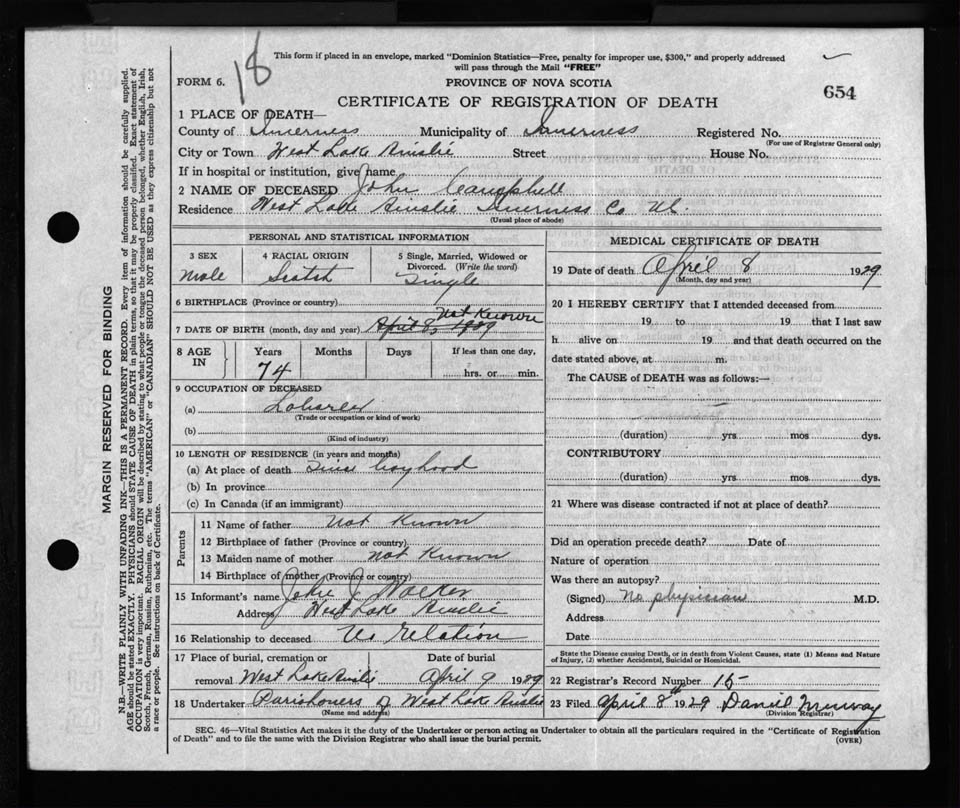 18
This form if placed in an envelope, marked "Dominion Statistics—Free, penalty for improper use, $300," and properly addressed
will pass through the Mail "FREE"
FORM 6.
PROVINCE OF NOVA SCOTIA
654
CERTIFICATE OF REGISTRATION OF DEATH
1 PLACE OF DEATH—
County of Inverness Municipality of Inverness Registered No.
(For use of Registrar General only)
City or Town West Lake Ainslie Street House No.
If in hospital or institution, give name
2 NAME OF DECEASED John Campbell
Residence West Lake Ainslie Inverness Co
(Usual place of abode)
PERSONAL AND STATISTICAL INFORMATION
3 SEX
Male
4 RACIAL ORIGIN
Scotch
5 Single, Married, Widowed or
Divorced. (Write the word)
Single
6 BIRTHPLACE (Province or country)
Not Known
7 DATE OF BIRTH (month, day and year) April 8, 1929
8 AGE IN
Years Months Days If less than one day,
74 hrs. or min.
9 OCCUPATION OF DECEASED
(a) Laborer
(Trade or occupation or kind of work)
(b)
(Kind of industry)
10 LENGTH OF RESIDENCE (in years and months)
(a) At place of death Since boyhood
(b) In province
(c) In Canada (if an immigrant)
Parents
11 Name of father Not Known
12 Birthplace of father (Province or country)
13 Maiden name of mother Not Known
14 Birthplace of mother (Province or country)
15 Informant's name John J Walker
Address West Lake Ainslie
16 Relationship to deceased No relation
17 Place of burial, cremation or Date of burial
removal West Lake Ainslie April 9 1929
18 Undertaker Parishoners of West Lake Ainslie
(Name and address)
MEDICAL CERTIFICATE OF DEATH
19 Date of death April 8 1929
(Month, day and year)
20 I HEREBY CERTIFY that I attended deceased from
19 to 19 that I last saw
h alive on 19 and that death occurred on the
date stated above, at m.
The CAUSE of DEATH was as follows:—
(duration) yrs mos dys.
CONTRIBUTORY
(duration) yrs. mos. dys.
21 Where was disease contracted if not at place of death?
Did an operation precede death? Date of
Nature of operation
Was there an autopsy?
(Signed) No physician M.D.
Address
Date
State the Disease causing Death, or in death from Violent Causes, state (1) Means and Nature
of Injury, (2) whether Accidental, Suicidal or Homicidal.
22 Registrar's Record Number 15
23 Filed April 8th 1929 Daniel Murray
(Division Registrar)
SEC. 46—Vital Statistics Act makes it the duty of the Undertaker or person acting as Undertaker to obtain all the particulars required in the "Certificate of Registration
of Death" and to file the same with the Division Registrar who shall issue the burial permit.
(OVER)
MARGIN RESERVED FOR BINDING
N.B.—WRITE PLAINLY WITH UNFADING INK—THIS IS A PERMANENT RECORD. Every item of information should be carefully supplied.
AGE should be stated EXACTLY. PHYSICIANS should STATE CAUSE OF DEATH in plain terms, so that it may be properly classified. Exact statement of
OCCUPATION is very important. RACIAL ORIGIN will be described by stating to what people or tongue the deceased person belonged, whether English, Irish,
Scotch, French, German, Russian, Ruthenian, etc. The terms "AMERICAN" or "CANADIAN" SHOULD NOT BE USED as they express citizenship but not
a race or people. See instructions on back of Certificate.